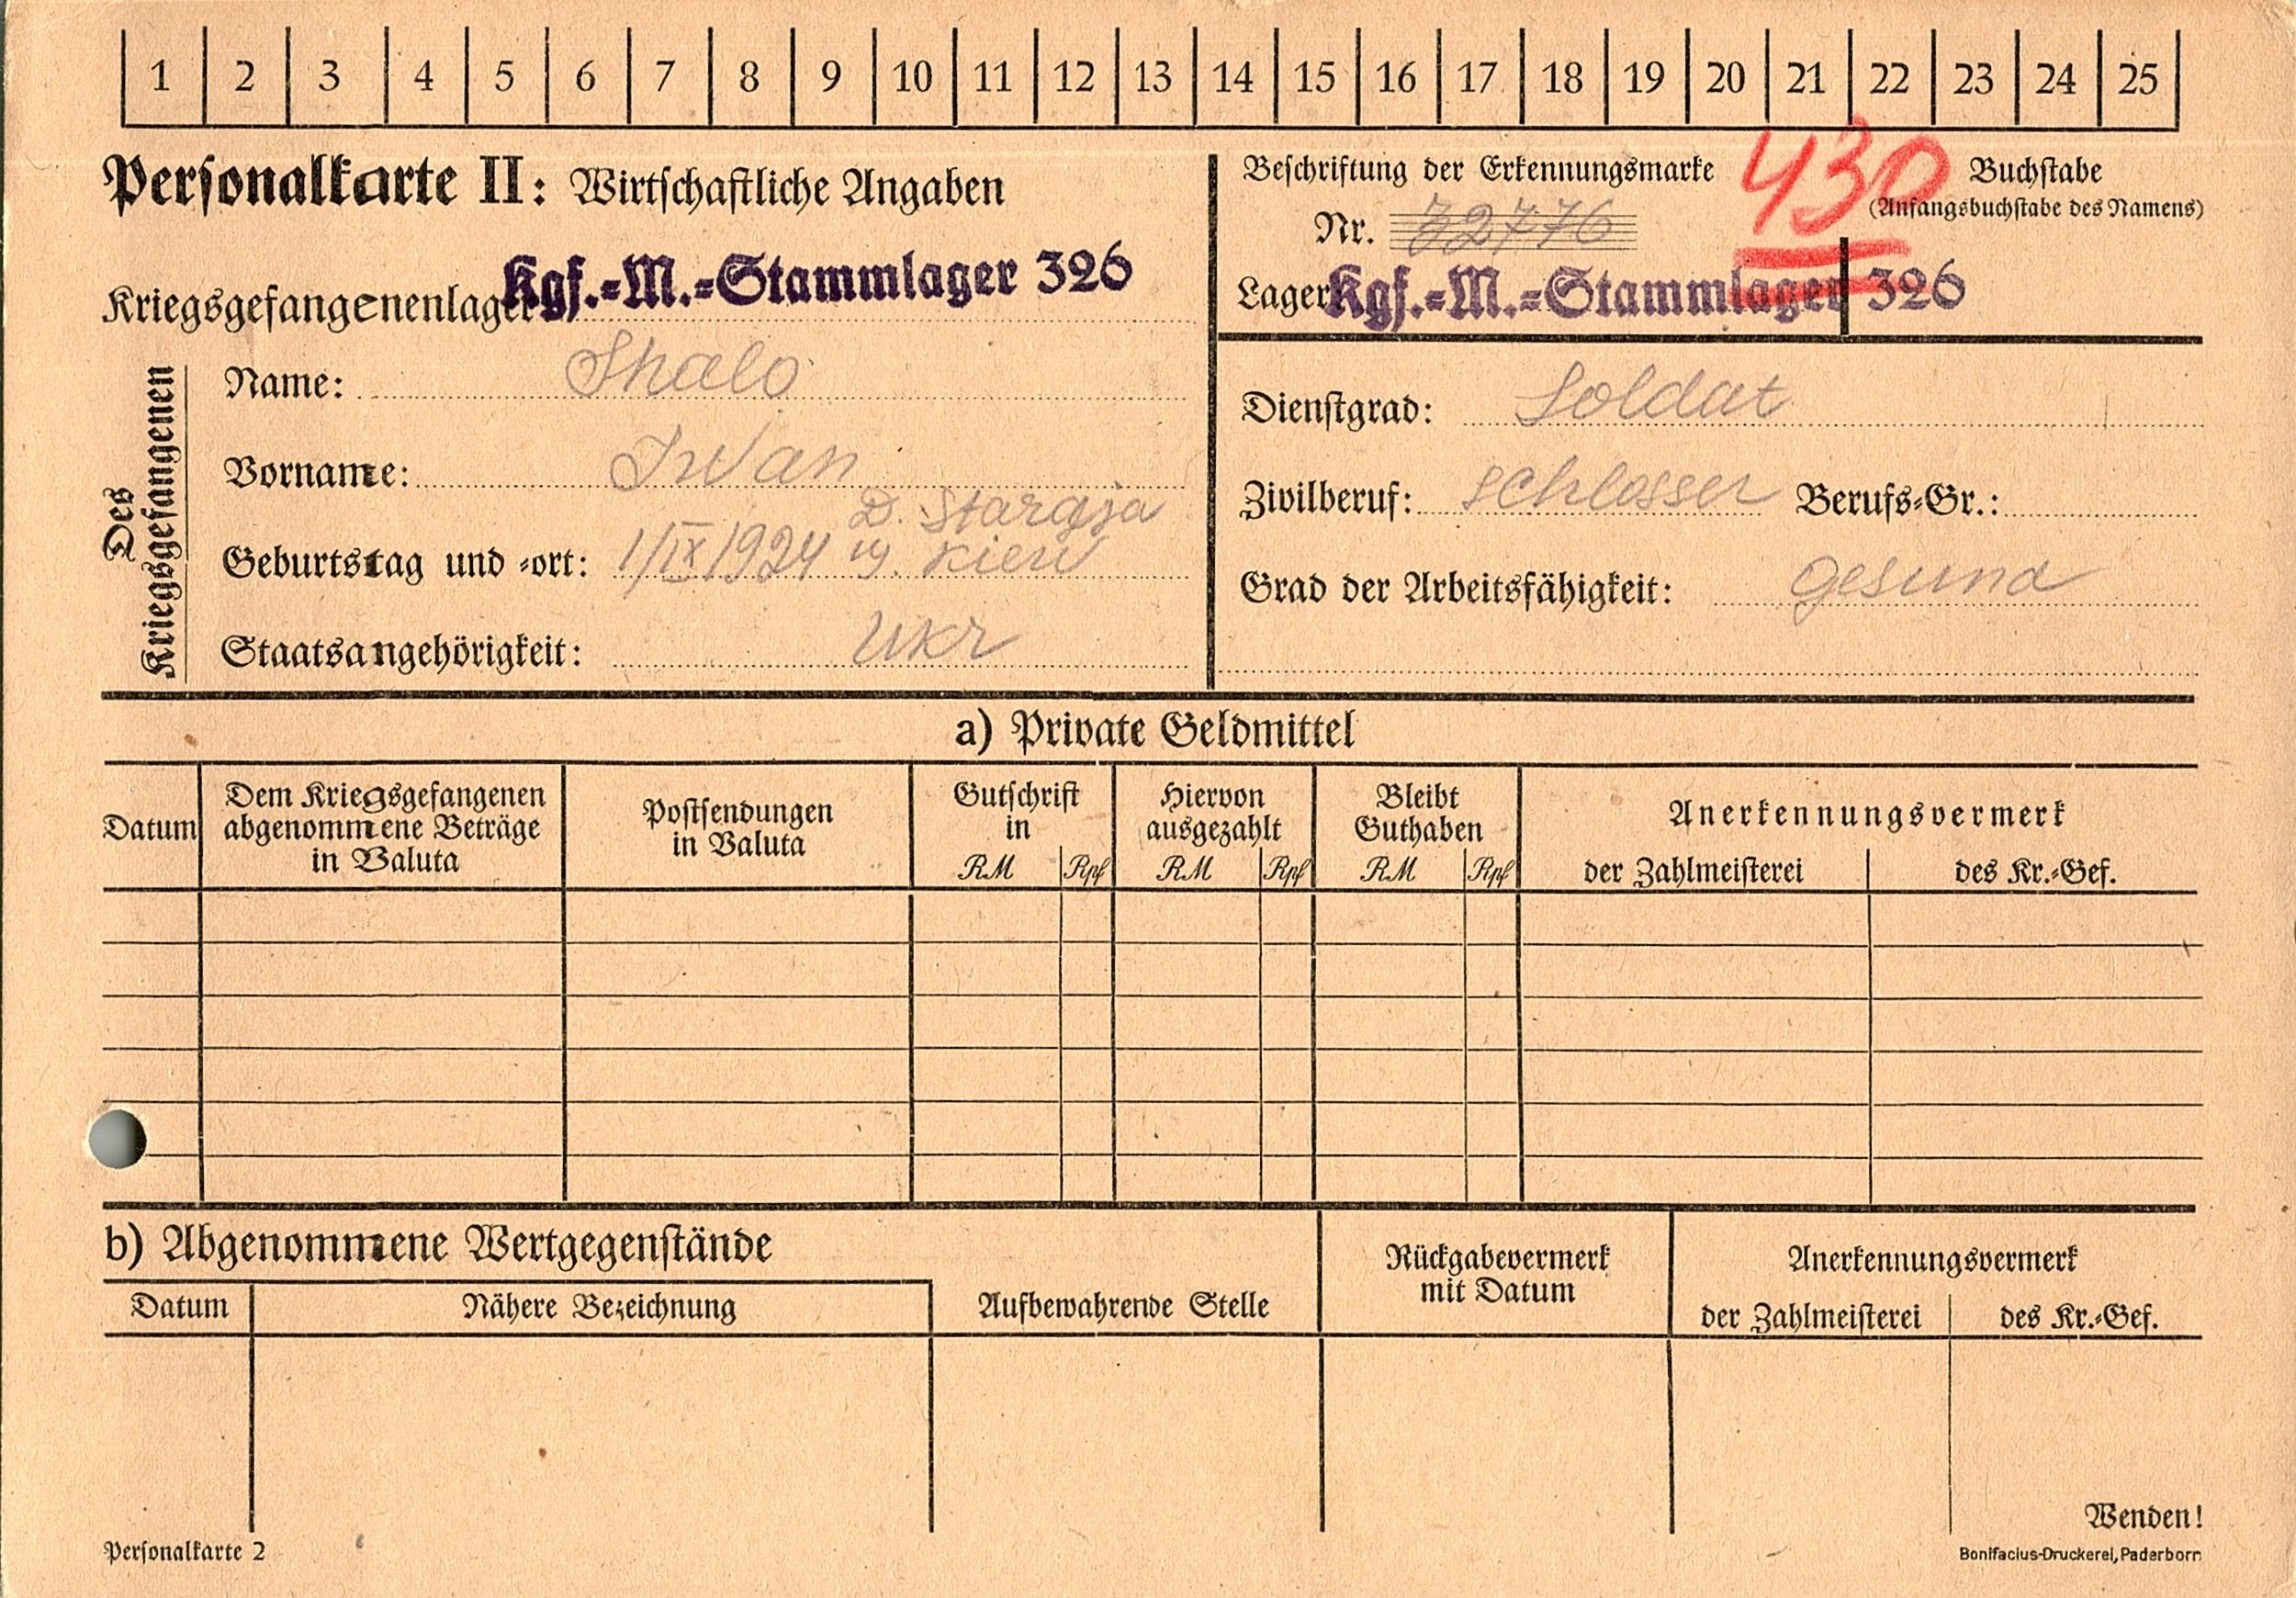 1 2 3 4 5 6 7 8 9 10 11 12 13 14 15 16 17 18 19 20 21 22 23 24 25
Personalkarte II: Wirtschaftliche Angaben
Kriegsgefangenenlager Kgf.-M.-Stammlager 326
Beschriftung der Erkennungsmarke
430
Nr. 72776
Buchstabe
(Anfangsbuchstabe des Namens)
Lager Kgf.-M.-Stammlager 326
Des
Kriegsgefangenen
Name: Shalo
Vorname: Iwan
D. Staraja
Geburtstag und -ort: 1/IX 1924 ig. Kiew
Staatsangehörigkeit: Ukr
Dienstgrad: Soldat
Zivilberuf: Schlosser Berufs-Gr.:
Grad der Arbeitsfähigkeit: gesund
a) Private Geldmittel
Datum
Dem Kriegsgefangenen
abgenommene Beträge
in Valuta
Postsendungen
in Valuta
Gutschrift
in
RM Rpf
Hiervon
ausgezahlt
RM Rpf
Bleibt
Guthaben
RM Rpf
Anerkennungsvermerk
der Zahlmeisterei
des Kr.-Gef.
b) Abgenommene Wertgegenstände
Datum
Nähere Bezeichnung
Aufbewahrende Stelle
Rückgabevermerk
mit Datum
Anerkennungsvermerk
der Zahlmeisterei
des Kr.-Gef.
Wenden!
Personalkarte 2
Bonifacius-Druckerei, Paderborn